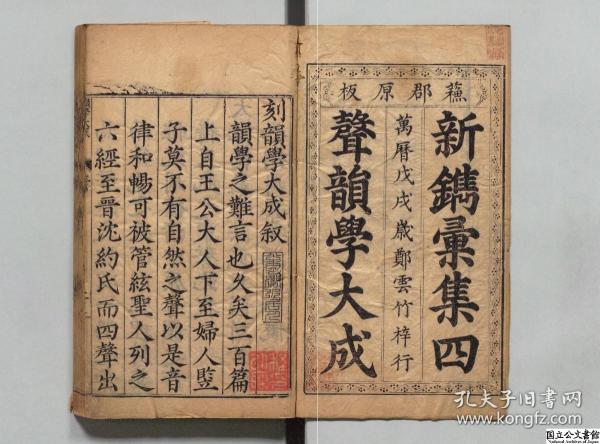 蘓郡原板
新鐫彙集四
萬曆戊戌歲鄭雲竹梓行
聲韻學大成
刻韻學大成叙
韻學之難言也久矣三百篇
上自王公大人下至婦人豎
子莫不有自然之聲以是音
律和暢可被管絃聖人列之
六經至晉沈約氏而四聲出
孔夫子旧书网
www.kongfz.com
国立公文書館
National Archives of Japan